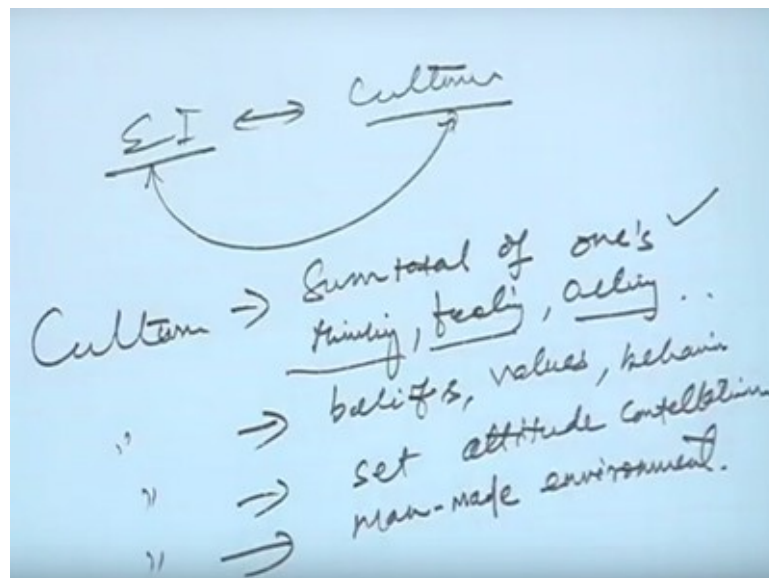 EI ↔ Culture
Culture → Sum total of one's ✓
thinking, feeling, acting ..
" → beliefs, values, behavior
" → set attitude contellation
" → man-made environment.